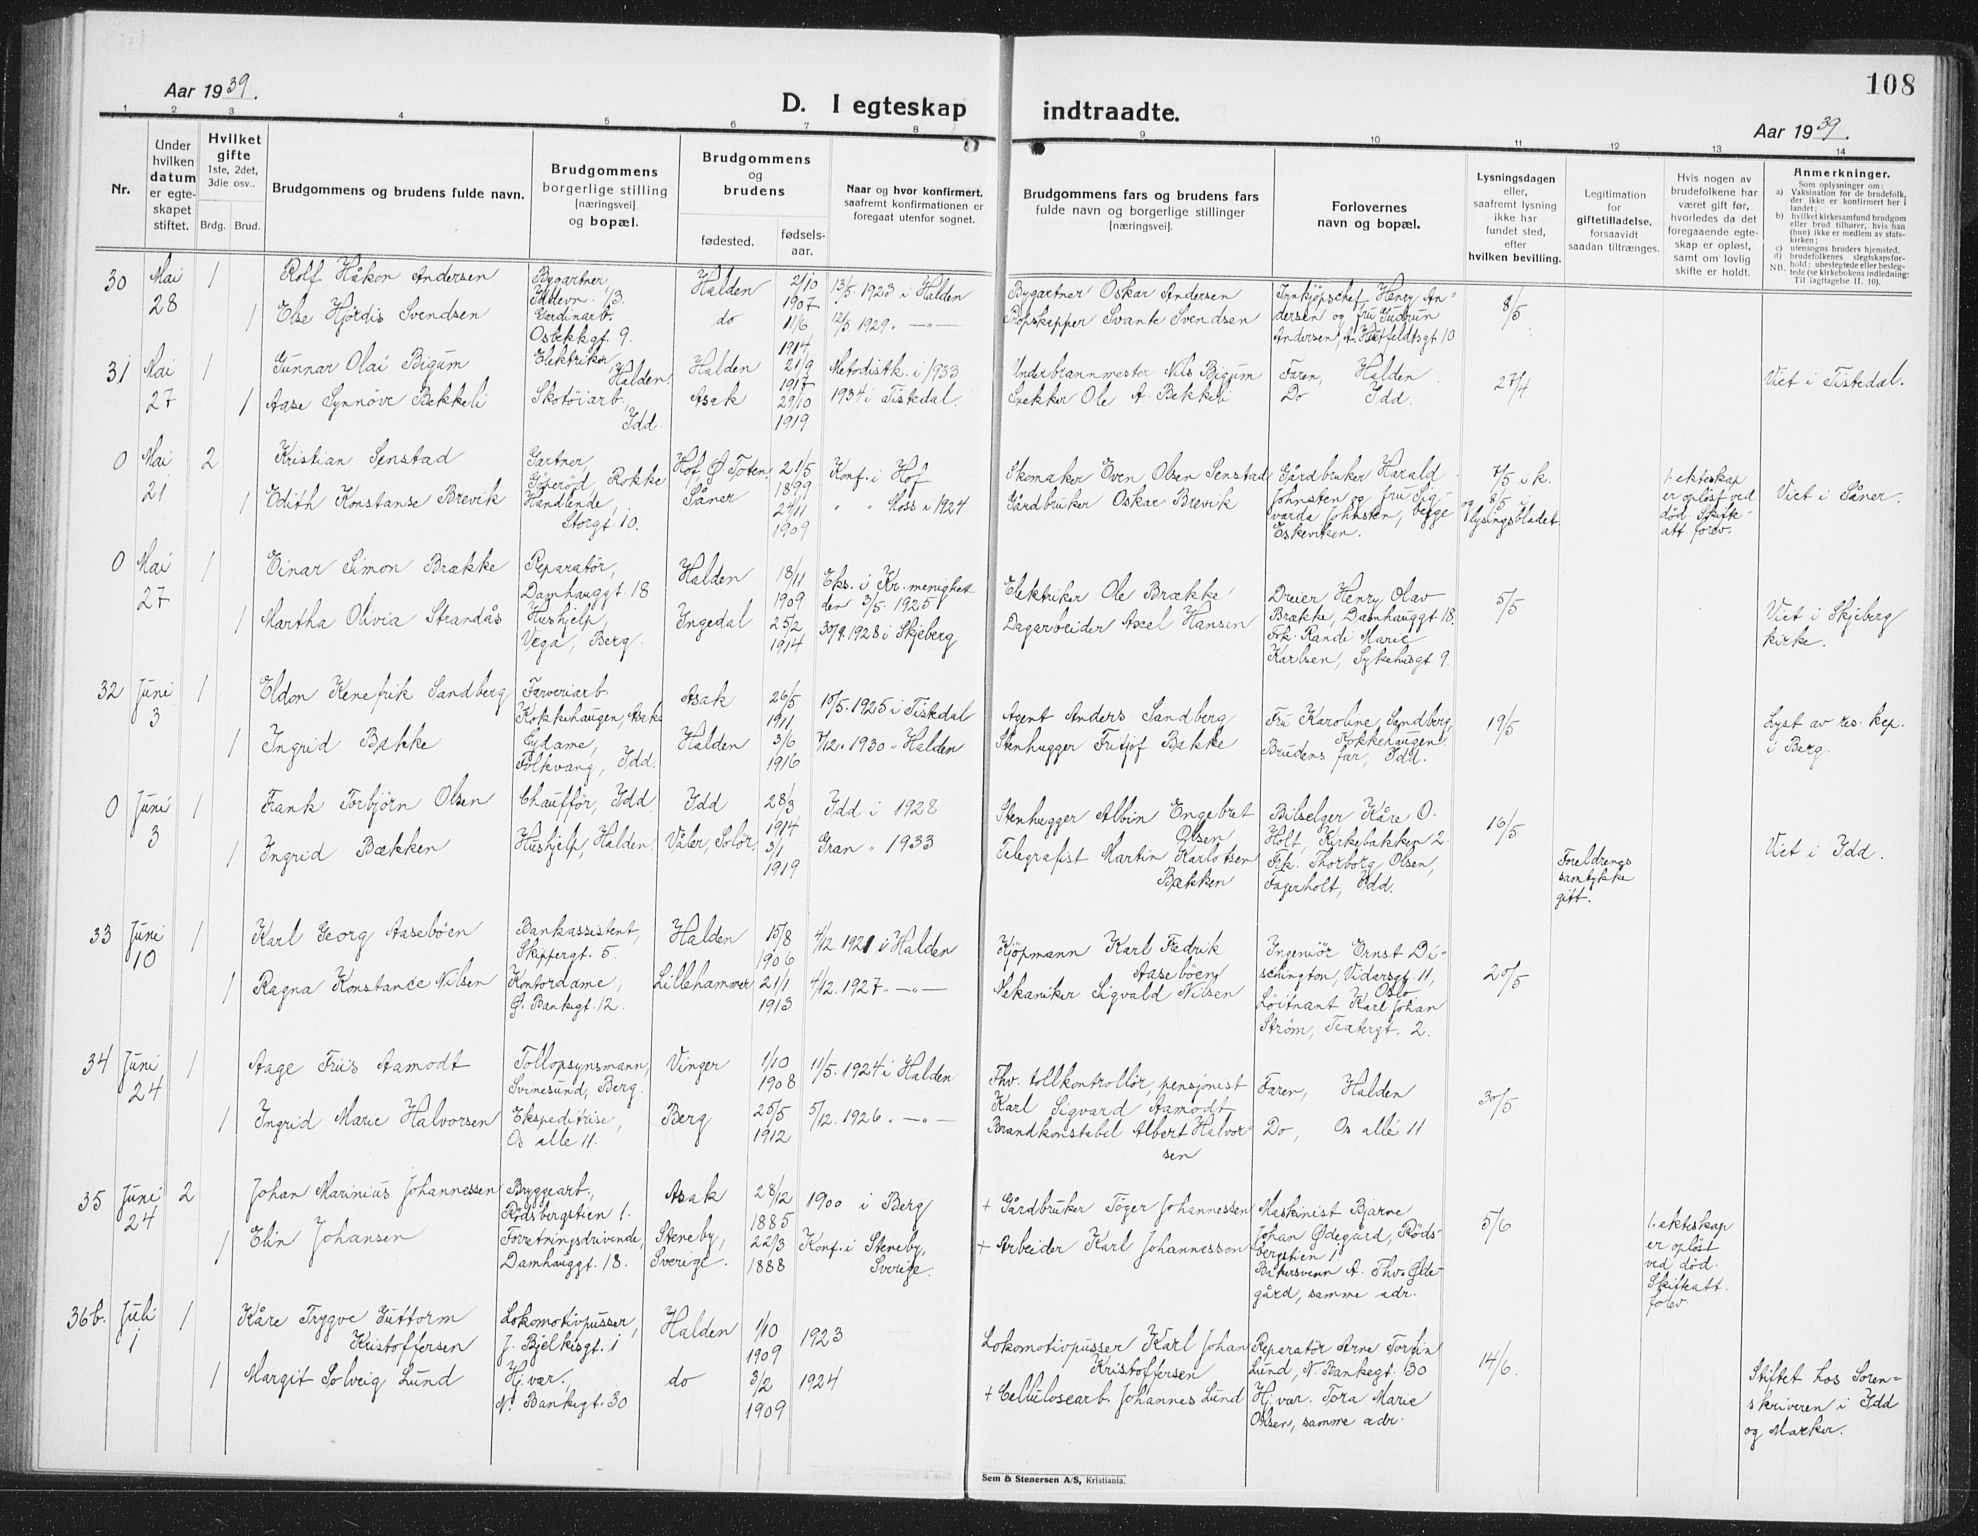 108
Aar 1939.
D. I egteskap indtraadte.
Aar 1939.
1 2 3 4 5 6 7 8 9 10 11 12 13 14
Nr.
Under hvilken datum er egteskapet stiftet.
Hvilket gifte 1ste, 2det, 3die osv..
Brdg. Brud.
Brudgommens og brudens fulde navn.
Brudgommens borgerlige stilling [næringsvei] og bopæl.
Brudgommens og brudens
fødested.
fødselsaar.
Naar og hvor konfirmert, saafremt konfirmationen er foregaat utenfor sognet.
Brudgommens fars og brudens fars fulde navn og borgerlige stillinger [næringsvei].
Forlovernes navn og bopæl.
Lysningsdagen eller, saafremt lysning ikke har fundet sted, efter hvilken bevilling.
Legitimation for giftetilladelse, forsaavidt saadan tiltrænges.
Hvis nogen av brudefolkene har været gift før, hvorledes da det foregaaende egteskap er opløst, samt om lovlig skifte er holdt.
Anmerkninger.
Som oplysninger om:
a) Vaksination for de brudefolk, der ikke er konfirmert her i landet;
b) hvilket kirkesamfund brudgom eller brud tilhører, hvis han (hun) ikke er medlem av statskirken;
c) utensogns bruders hjemsted.
d) brudefolkenes slegtskapsforhold; ubeslegtede eller beslegtede (se kirkebokens indledning:
NB. Til iagttagelse II. 10).
30 Mai 28 1 Rolf Håkon Andersen Bygartner, Halden 2/10 1907 13/5 1923 i Halden Bygartner Oskar Andersen Innkjöpschef Henry Andersen og fru Gudrun Andersen, A. Huitfeldtsgt 10 8/5
1 Else Hjördis Svendsen Gardinarb. Osbekkgt. 9. do 11/6 1914 12/5 1929 " — " — Svante Svendsen
31 Mai 27 1 Gunnar Olai Bigum Elektriker, Halden. Halden 21/9 1917 Metodistk. i 1933 Underbrannmester Nils Bigum Faren, Halden 27/4 Viet i Tistedal.
1 Aase Synnöve Bekkeli Skotöiarb., Idd. Asak 29/10 1919 1934 i Tistedal. Snekker Ole A. Bekkeli Do Idd.
0 Mai 21 2 Kristian Senstad Gartner, Rokke Hof, Ø. Toten. 21/5 1899 Konf. i Hof Skomaker Even Olsen Senstad Gårdbruker Harald Johnsten og fru Sigvarda Johnsten, begge Eskeviken. 7/5 i k. og 8/5 i lysingsbladet. 1. ekteskap er oplöst ved död. Skifteatt. forev. Viet i Såner.
1 Edith Konstanse Brevik Handlende, Storgt. 10. Såner 24/11 1909 " " Moss i 1924 Gårdbruker Oskar Brevik
0 Mai 27 1 Einar Simon Brække Reparatör, Damhauggt. 18 Halden 18/11 1909 Eks. i Kr. menighet den 3/5. 1925 Elektriker Ole Brække Dreier Henry Olav Brække, Damhauggt. 18. Frk. Randi Marie Karlsen, Sykehusgt 9. 5/5 Viet i Skjeberg kirke.
1 Martha Olivia Strandås Hushjelp, Vega, Berg. Ingedal 25/2 1914 30/9. 1928 i Skjeberg Dagarbeider Axel Hansen
32 Juni 3 1 Eldon Kenefrik Sandberg Farveriarb. Kokkehaugen, Asak Asak 26/5 1911 10/5. 1925 i Tistedal Agent Anders Sandberg Fru Karoline Sandberg, Kokkehaugen. Brudens far, Idd. 19/5 Lyst av res. kap. i Berg.
1 Ingrid Bakke Sydame, Folkvang, Idd. Halden 3/6 1916 7/12. 1930 " Halden Stenhugger Fritjof Bakke
0 Juni 3 1 Frank Torbjörn Olsen Chafför, Idd Idd 28/3 1914 Idd i 1928 Stenhugger Albin Engebret Olsen Bilselger Kåre O. Holt, Kirkebakken 2. Frk. Thorborg Olsen, Fagerholt, Idd. 16/5
1 Ingrid Bækken Hushjelp, Halden. Våler, Solör. 3/1 1919 Gran " 1933 Telegrafist Martin Karlotsen Bækken Foreldrenes samtykke gitt. Viet i Idd.
33 Juni 10 1 Karl Georg Aaseböen Bankassistent, Skippergt. 5. Halden 15/8 1906 4/12. 1921 i Halden Kjöpmann Karl Fredrik Aaseböen Ingeniör Ernst Dischington, Vidarsgt. 11, Oslo. Löitnant Karl Johan Ström, Teatergt. 2. 20/5
1 Ragna Konstance Nilsen Kontordame, Ø. Bankegt. 12. Lillehammer 21/1 1913 4/12. 1927 " — " — Mekaniker Sigvald Nilsen
34 Juni 24 1 Aage Friis Aamodt Tollopsynsmann, Svinesund, Berg. Vinger 1/10 1908 11/5. 1924 i Halden Fhv. tollkontrollör, pensjonist Karl Sigvard Aamodt Faren, Halden 30/5
1 Ingrid Marie Halvorsen Ekspeditrise, Os alle 11. Berg 25/5 1912 5/12. 1926 " — " — Brandkonstabel Albert Halvorsen Do, Os allé 11
35 Juni 24 2 Johan Marinius Johannessen Bryggearb., Rödsbergstien 1. Asak 28/12 1885 1900 i Berg + Gårdbruker Töger Johannessen Maskinist Bjarne Johan Ødegård, Rödsbergstien 1. Bakersvenn A. Thv. Ødegård, samme adr. 5/6 1. ekteskap er oplöst ved död. Skifteatt. forev.
1 Elin Johansen Forretningsdrivende, Damhauggt. 18. Steneby, Sverige. 22/3 1888 Konf. i Steneby, Sverige. + Arbeider Karl Johannesson
36b. Juli 1 1 Kåre Trygve Guttorm Kristoffersen Lokomotivpusser, J. Bjelkesgt. 1 Halden 1/10 1909 1923 Lokomotivpusser Karl Johan Kristoffersen Reparatör Arne Torfin Lund, N. Bankegt. 30 Hj. vær. Tora Marie Olsen, samme adr. 14/6. Stiftet hos Sorenskriveren i Idd og Marker.
1 Margit Solveig Lund Hj. vær., N. Bankegt. 30 do 3/2 1909 1924 + Cellulosearb. Johannes Lund
Sem & Stenersen A/S, Kristiania.